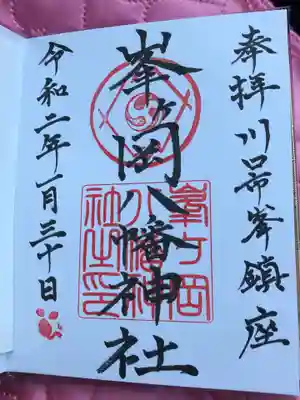 奉拝 川口市峯鎮座
峯ヶ岡八幡神社
峯ヶ岡
八幡神
社之印
令和二年一月三十日